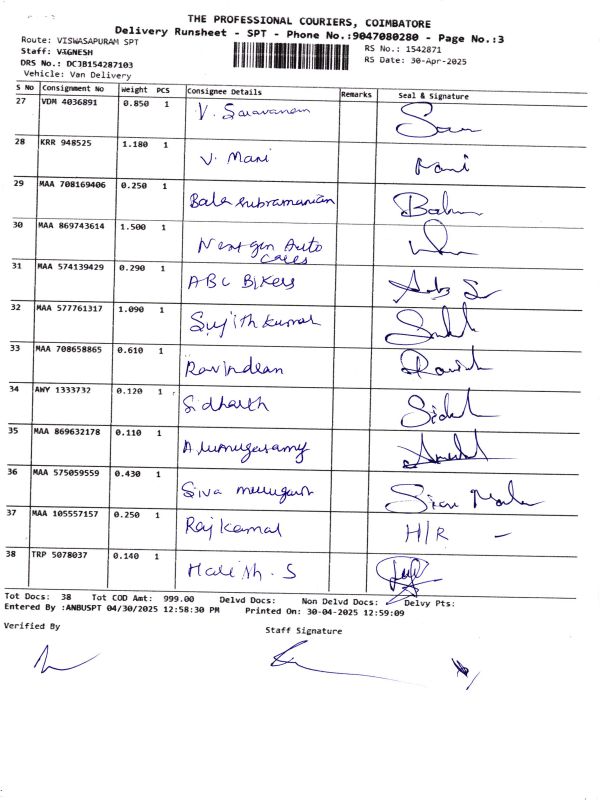 THE PROFESSIONAL COURIERS, COIMBATORE
Delivery Runsheet - SPT - Phone No.:9047080280 - Page No.:3
Route: VISWASAPURAM SPT
RS No.: 1542871
Staff: VIGNESH
RS Date: 30-Apr-2025
DRS No.: DCJB154287103
Vehicle: Van Delivery
S No Consignment No Weight PCS Consignee Details Remarks Seal & Signature
27 VDM 4036891 0.850 1 V. Saravanan
28 KRR 948525 1.180 1 V. Mani Mani
29 MAA 708169406 0.250 1 Bala subramanian
30 MAA 869743614 1.500 1 Nextgen Auto
Cares
31 MAA 574139429 0.290 1 ABC Bikers
32 MAA 577761317 1.090 1 Sujith kumar
33 MAA 708658865 0.610 1 Ravindran
34 AWY 1333732 0.120 1 Sidharth
35 MAA 869632178 0.110 1 Arumugasamy
36 MAA 575059559 0.430 1 Siva murugan
37 MAA 105557157 0.250 1 Rajkamal H/R -
38 TRP 5078037 0.140 1 Harish. S
Tot Docs: 38 Tot COD Amt: 999.00 Delvd Docs: Non Delvd Docs: Delvy Pts:
Entered By :ANBUSPT 04/30/2025 12:58:30 PM Printed On: 30-04-2025 12:59:09
Verified By
Staff Signature